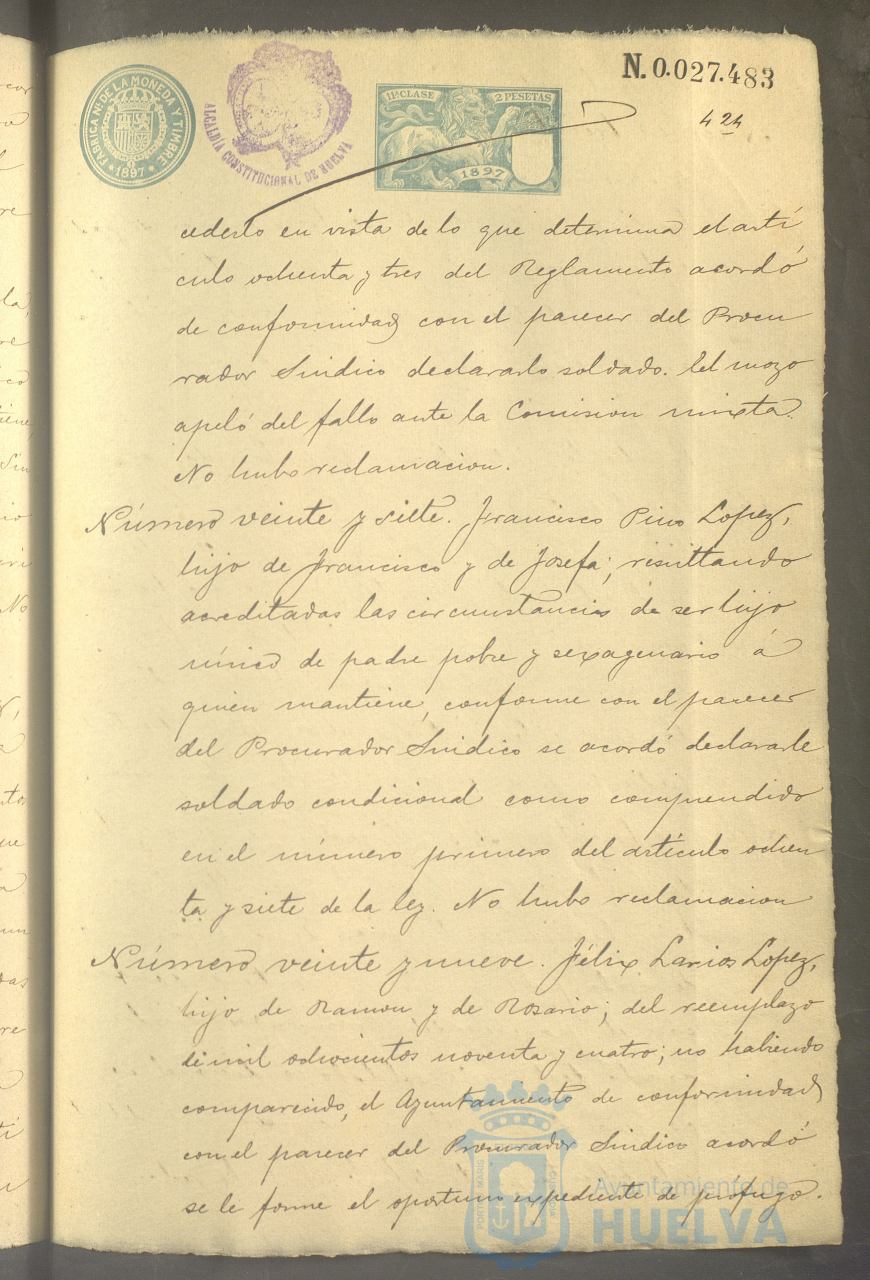 N. 0.027.483
424
FABRICA Nal. DE LA MONEDA Y TIMBRE
1897
ALCALDIA CONSTITUCIONAL DE HUELVA
11ª CLASE 2 PESETAS
1897
cederlo en vista de lo que determina el artí
culo ochenta y tres del Reglamento acordó
de conformidad con el parecer del Procu
rador Sindico declararlo soldado. El mozo
apeló del fallo ante la Comision mixta.
No hubo reclamacion.
Número veinte y siete. Francisco Pino Lopez,
hijo de Francisco y de Josefa; resultando
acreditadas las circunstancias de ser hijo
único de padre pobre y sexagenario á
quien mantiene, conforme con el parecer
del Procurador Sindico se acordó declararle
soldado condicional como comprendido
en el número primero del artículo ochen
ta y siete de la ley. No hubo reclamacion
Número veinte y nueve. Félix Larios Lopez,
hijo de Ramon y de Rosario; del reemplazo
de mil ochocientos noventa y cuatro; no habiendo
comparecido, el Ayuntamiento de conformidad
con el parecer del Procurador Sindico acordó
se le forme el oportuno expediente de prófugo.
Ayuntamiento de
HUELVA